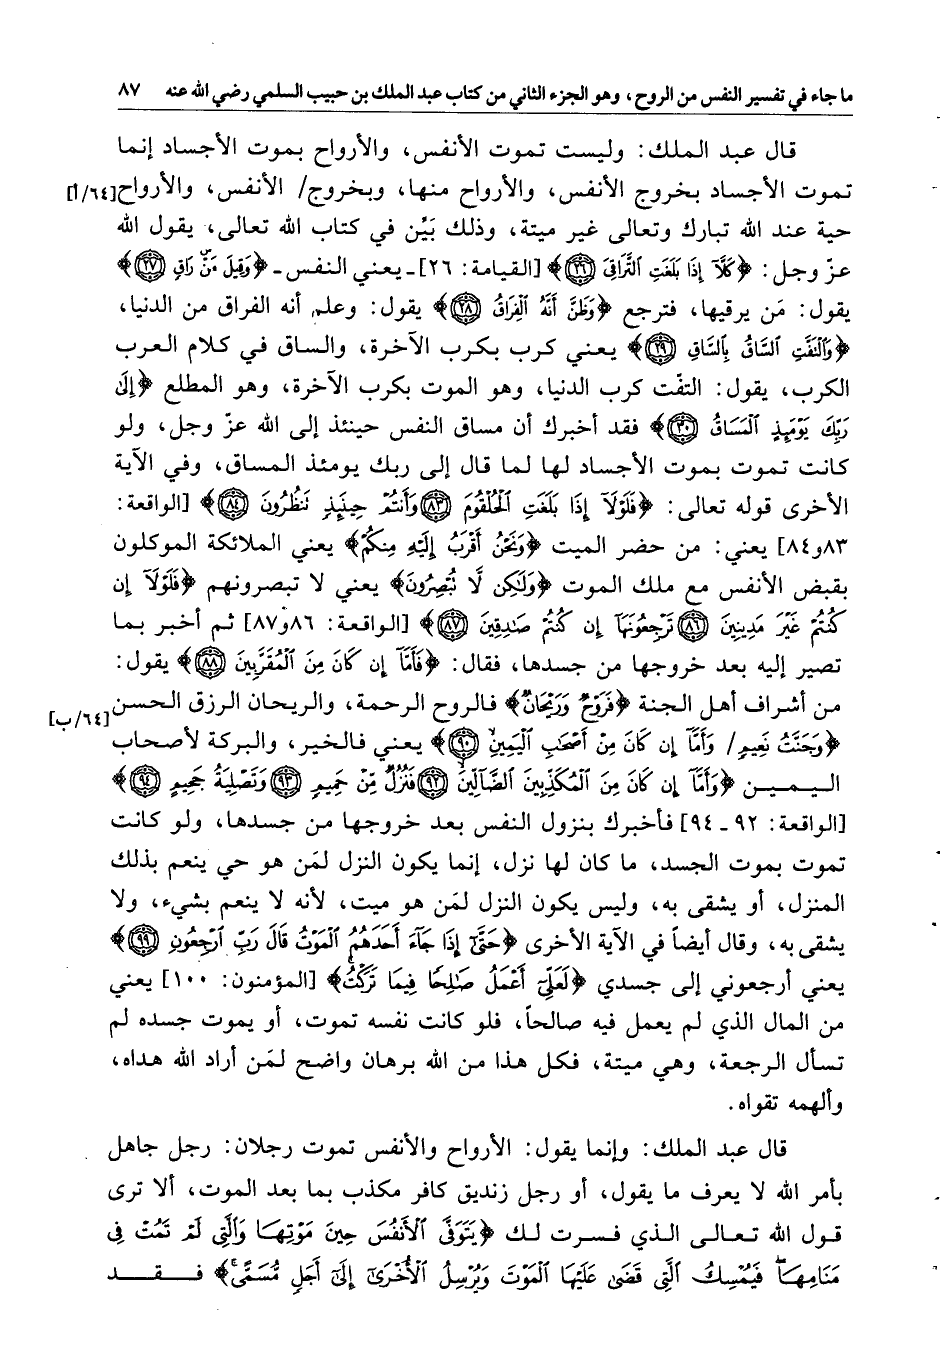 ما جاء في تفسير النفس من الروح، وهو الجزء الثاني من كتاب عبد الملك بن حبيب السلمي رضي الله عنه ٨٧
قال عبد الملك: وليست تموت الأنفس، والأرواح بموت الأجساد إنما
تموت الأجساد بخروج الأنفس، والأرواح منها، وبخروج/ الأنفس، والأرواح [٦٤/أ]
حية عند الله تبارك وتعالى غير ميتة، وذلك بَيِّن في كتاب الله تعالى، يقول الله
عزّ وجل: ﴿كَلَّآ إِذَا بَلَغَتِ ٱلتَّرَاقِىَ ۝٢٦﴾ [القيامة: ٢٦] ـ يعني النفس ـ ﴿وَقِيلَ مَنْ رَاقٍ ۝٢٧﴾
يقول: مَن يرقيها، فترجع ﴿وَظَنَّ أَنَّهُ ٱلْفِرَاقُ ۝٢٨﴾ يقول: وعلم أنه الفراق من الدنيا،
﴿وَٱلْتَفَّتِ ٱلسَّاقُ بِٱلسَّاقِ ۝٢٩﴾ يعني كرب بكرب الآخرة، والساق في كلام العرب
الكرب، يقول: التفّت كرب الدنيا، وهو الموت بكرب الآخرة، وهو المطلع ﴿إِلَىٰ
رَبِّكَ يَوْمَئِذٍ ٱلْمَسَاقُ ۝٣٠﴾ فقد أخبرك أن مساق النفس حينئذ إلى الله عزّ وجل، ولو
كانت تموت بموت الأجساد لها لما قال إلى ربك يومئذ المساق، وفي الآية
الأخرى قوله تعالى: ﴿فَلَوْلَآ إِذَا بَلَغَتِ ٱلْحُلْقُومَ ۝٨٣ وَأَنتُمْ حِينَئِذٍ تَنظُرُونَ ۝٨٤﴾ [الواقعة:
٨٣و٨٤] يعني: من حضر الميت ﴿وَنَحْنُ أَقْرَبُ إِلَيْهِ مِنكُمْ﴾ يعني الملائكة الموكلون
بقبض الأنفس مع ملك الموت ﴿وَلَٰكِن لَّا تُبْصِرُونَ﴾ يعني لا تبصرونهم ﴿فَلَوْلَآ إِن
كُنتُمْ غَيْرَ مَدِينِينَ ۝٨٦ تَرْجِعُونَهَآ إِن كُنتُمْ صَٰدِقِينَ ۝٨٧﴾ [الواقعة: ٨٦و٨٧] ثم أخبر بما
تصير إليه بعد خروجها من جسدها، فقال: ﴿فَأَمَّآ إِن كَانَ مِنَ ٱلْمُقَرَّبِينَ ۝٨٨﴾ يقول:
من أشراف أهل الجنة ﴿فَرَوْحٌ وَرَيْحَانٌ﴾ فالروح الرحمة، والريحان الرزق الحسن [٦٤/ب]
﴿وَجَنَّتُ نَعِيمٍ/ وَأَمَّآ إِن كَانَ مِنْ أَصْحَٰبِ ٱلْيَمِينِ ۝٩٠﴾ يعني فالخير، والبركة لأصحاب
اليمين ﴿وَأَمَّآ إِن كَانَ مِنَ ٱلْمُكَذِّبِينَ ٱلضَّآلِّينَ ۝٩٢ فَنُزُلٌ مِّنْ حَمِيمٍ ۝٩٣ وَتَصْلِيَةُ جَحِيمٍ ۝٩٤﴾
[الواقعة: ٩٢ ـ ٩٤] فأخبرك بنزول النفس بعد خروجها من جسدها، ولو كانت
تموت بموت الجسد، ما كان لها نزل، إنما يكون النزل لمَن هو حي ينعم بذلك
المنزل، أو يشقى به، وليس يكون النزل لمَن هو ميت، لأنه لا ينعم بشيء، ولا
يشقى به، وقال أيضاً في الآية الأخرى ﴿حَتَّىٰٓ إِذَا جَآءَ أَحَدَهُمُ ٱلْمَوْتُ قَالَ رَبِّ ٱرْجِعُونِ ۝٩٩﴾
يعني أرجعوني إلى جسدي ﴿لَعَلِّىٓ أَعْمَلُ صَٰلِحًا فِيمَا تَرَكْتُ﴾ [المؤمنون: ١٠٠] يعني
من المال الذي لم يعمل فيه صالحاً، فلو كانت نفسه تموت، أو يموت جسده لم
تسأل الرجعة، وهي ميتة، فكل هذا من الله برهان واضح لمَن أراد الله هداه،
وألهمه تقواه.
قال عبد الملك: وإنما يقول: الأرواح والأنفس تموت رجلان: رجل جاهل
بأمر الله لا يعرف ما يقول، أو رجل زنديق كافر مكذب بما بعد الموت، ألا ترى
قول الله تعالى الذي فسرت لك ﴿يَتَوَفَّى ٱلْأَنفُسَ حِينَ مَوْتِهَا وَٱلَّتِى لَمْ تَمُتْ فِى
مَنَامِهَا فَيُمْسِكُ ٱلَّتِى قَضَىٰ عَلَيْهَا ٱلْمَوْتَ وَيُرْسِلُ ٱلْأُخْرَىٰٓ إِلَىٰٓ أَجَلٍ مُّسَمًّى﴾ فقد